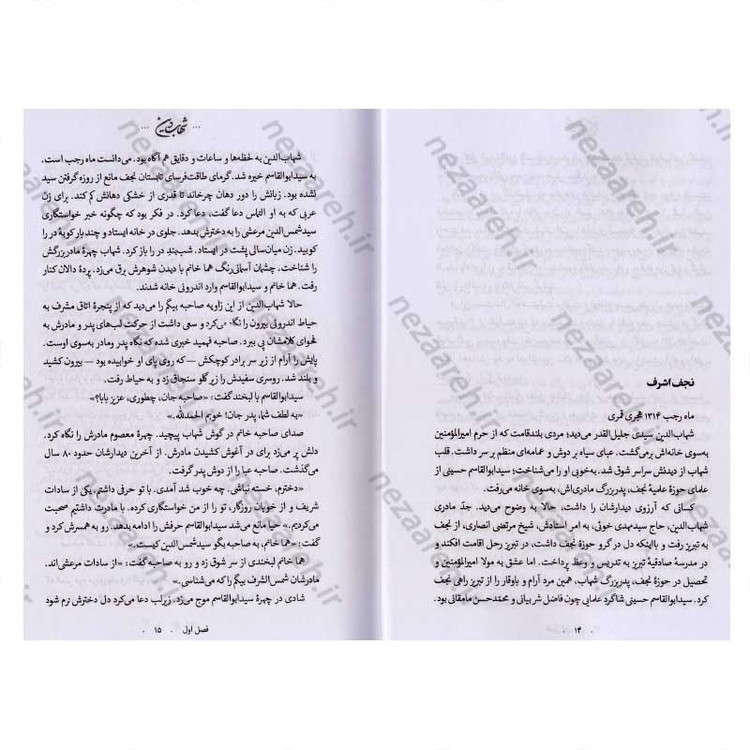 نجف اشرف
ماه رجب ۱۳۱۴ هجری قمری
شهاب‌الدین سیدی جلیل‌القدر می‌دید؛ مردی بلندقامت که از حرم امیرالمؤمنین
به‌سوی خانه‌اش برمی‌گشت. عبای سیاه بر دوش و عمامه‌ای منظم بر سر داشت. قلب
شهاب از دیدنش سراسر شوق شد. به‌خوبی او را می‌شناخت؛ سیدابوالقاسم حسینی از
علمای حوزهٔ علمیهٔ نجف، پدربزرگ مادری‌اش، به‌سوی خانه می‌رفت.
کسانی که آرزوی دیدارشان را داشت، حالا به وضوح می‌دید. جدّ مادری
شهاب‌الدین، حاج سیدمهدی خوئی، به امر استادش، شیخ مرتضی انصاری، از نجف
به تبریز رفت و بااینکه دل در گرو حوزهٔ نجف داشت، در تبریز رحل اقامت افکند و
در مدرسهٔ صادقیهٔ تبریز به تدریس و وعظ پرداخت. اما عشق به مولا امیرالمؤمنین و
تحصیل در حوزهٔ نجف، پدربزرگ شهاب، همین مرد آرام و باوقار را از تبریز راهی نجف
کرد. سیدابوالقاسم حسینی شاگرد علمایی چون فاضل شربیانی و محمدحسن مامقانی بود.
۱۴
... شهاب دین ...
شهاب‌الدین به لحظه‌ها و ساعات و دقایق هم آگاه بود. می‌دانست ماه رجب است.
به سیدابوالقاسم خیره شد. گرمای طاقت‌فرسای تابستان نجف مانع از روزه گرفتن سید
نشده بود. زبانش را دور دهان چرخاند تا قدری از خشکی دهانش کم کند. برای زن
عربی که به او التماس دعا گفت، دعا کرد. در فکر بود که چگونه خبر خواستگاری
سیدشمس‌الدین مرعشی را به دخترش بدهد. جلوی در خانه ایستاد و چند بار کوبهٔ در را
کوبید. زن میان‌سالی پشت در ایستاد. شب‌بندِ در را باز کرد. شهاب چهرهٔ مادربزرگش
را شناخت. چشمان آسمانی‌رنگ هما خانم با دیدن شوهرش برق می‌زد. پردهٔ دالان کنار
رفت. هما خانم و سیدابوالقاسم وارد اندرونی خانه شدند.
حالا شهاب‌الدین از این زاویه صاحبه بیگم را می‌دید که از پنجرهٔ اتاق مشرف به
حیاط اندرونی بیرون را نگاه می‌کرد و سعی داشت از حرکت لب‌های پدر و مادرش به
فحوای کلامشان پی ببرد. صاحبه فهمید خبری شده که پدر ومادر به‌سوی اوست.
پایش را آرام از زیر سر برادر کوچکش — که روی پای او خوابیده بود — بیرون کشید
و بلند شد. روسری سفیدش را زیر گلو سنجاق زد و به حیاط رفت.
سیدابوالقاسم با لبخند گفت: «صاحبه جان، چطوری، عزیز بابا؟»
«به لطف شما، پدر جان! خوبم الحمدلله.»
صدای صاحبه خانم در گوش شهاب پیچید. چهرهٔ معصوم مادرش را نگاه کرد.
دلش پر می‌زد برای در آغوش کشیدن مادرش. از آخرین دیدارشان حدود ۸۰ سال
می‌گذشت. صاحبه عبا را از دوش پدر گرفت.
«دخترم، خسته نباشی. چه خوب شد آمدی. با تو حرفی داشتم. یکی از سادات
شریف و از خوبان روزگار، تو را از من خواستگاری کرده. با مادرت داشتیم صحبت
می‌کردیم.» حیا مانع می‌شد سیدابوالقاسم حرفش را ادامه بدهد. رو به همسرش کرد و
گفت: «هما خانم، به صاحبه بگو سیدشمس‌الدین کیست.»
هما خانم لبخندی از سر شوق زد و رو به صاحبه گفت: «از سادات مرعشی‌اند.
مادرشان شمس‌الشرف بیگم را که می‌شناسی.»
شادی در چهرهٔ سیدابوالقاسم موج می‌زد. زیرلب دعا می‌کرد دل دخترش نرم شود
فصل اول . ۱۵
nezaareh.ir